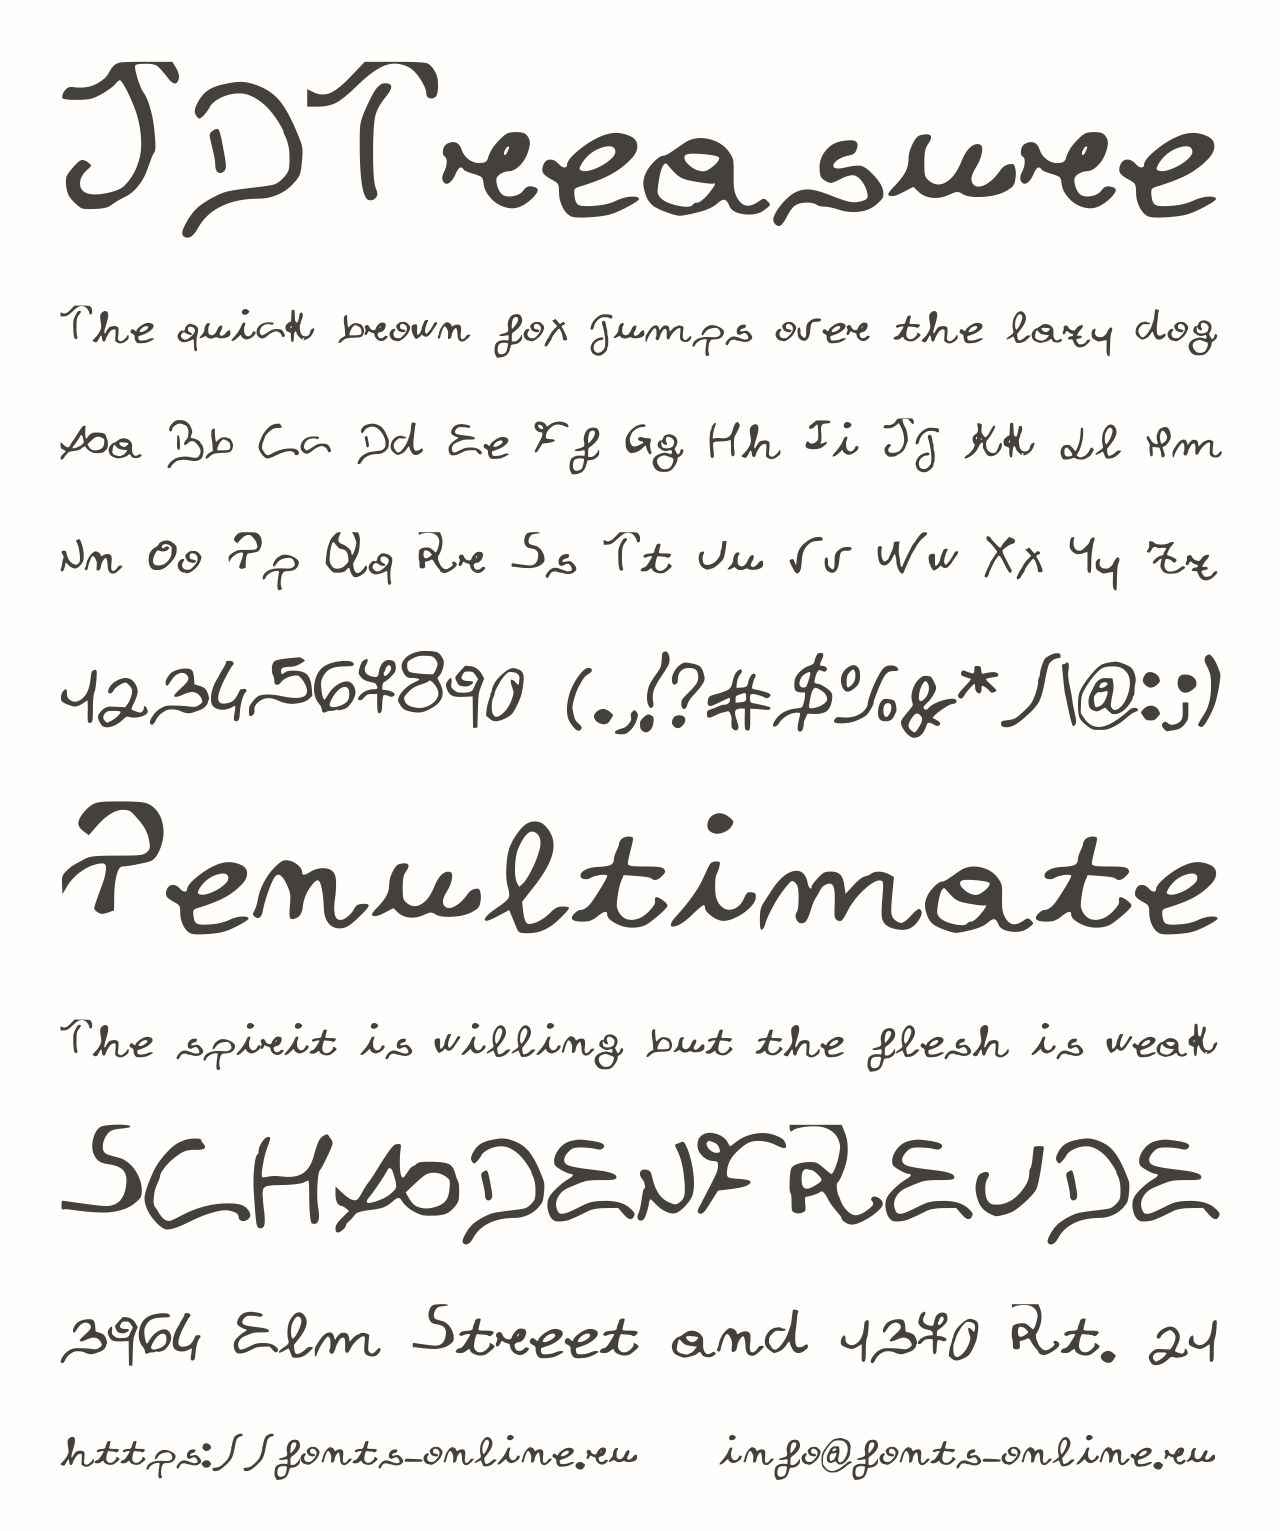 JDTreasure
The quick brown fox jumps over the lazy dog
Aa Bb Cc Dd Ee Ff Gg Hh Ii Jj Kk Ll Mm
Nn Oo Pp Qq Rr Ss Tt Uu Vv Ww Xx Yy Zz
1234567890 (.,!?#$%&* /\@:;)
Penultimate
The spirit is willing but the flesh is weak
SCHADENFREUDE
3964 Elm Street and 1370 Rt. 21
https://fonts-online.ru info@fonts-online.ru